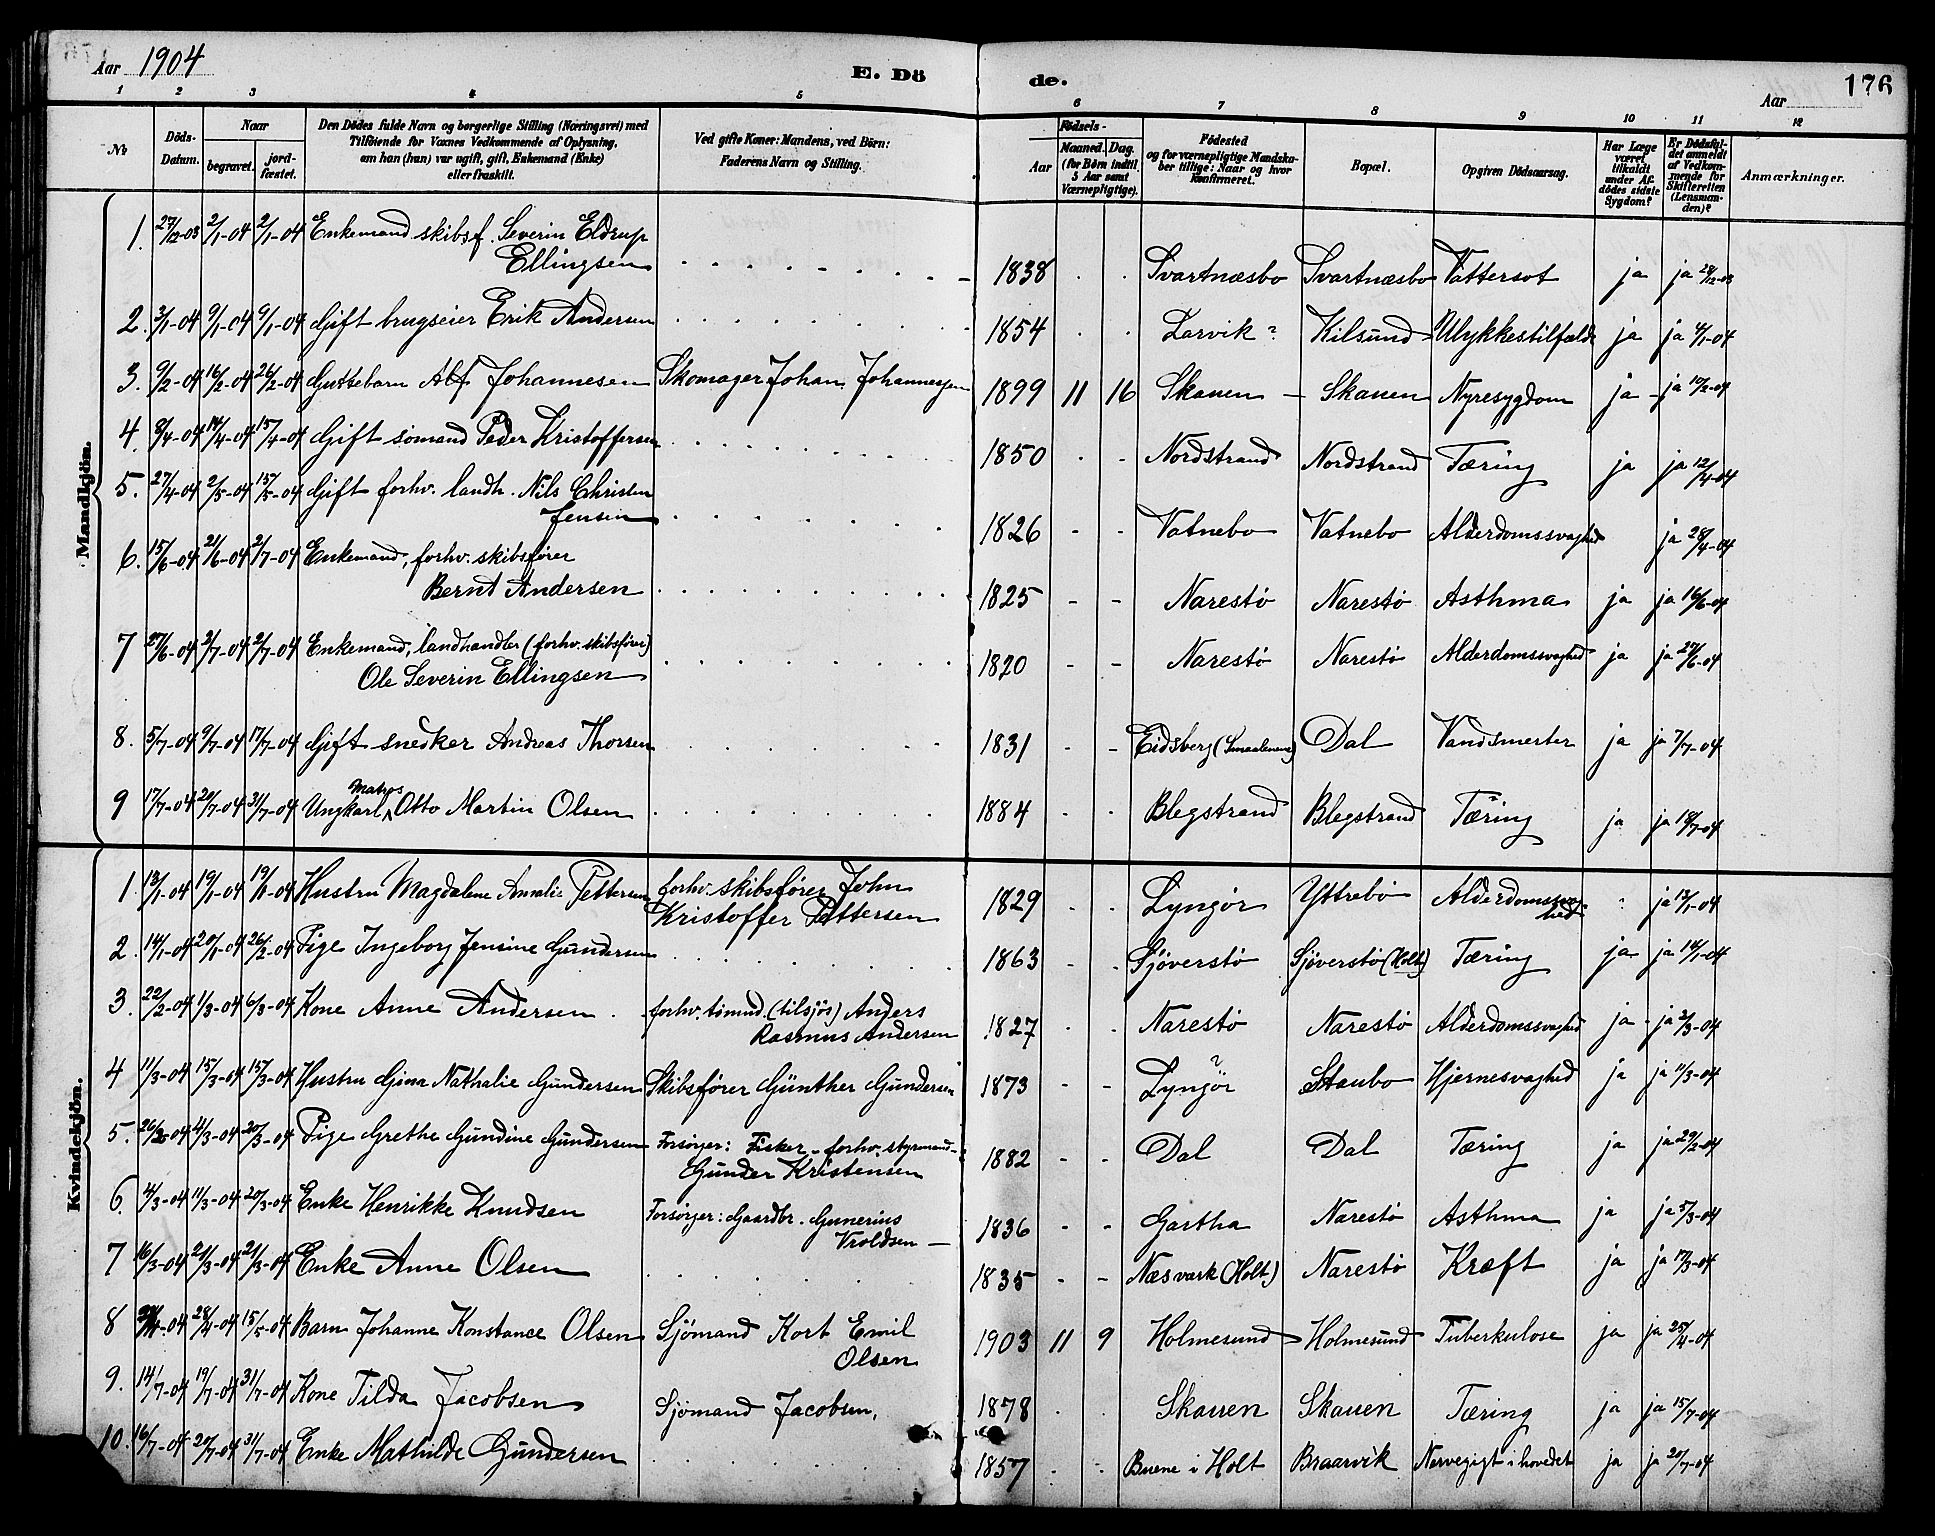 Aar 1904 E. Dö de. Aar 176
1 2 3 4 5 6 7 8 9 10 11 12
№ Döds-Datum. Naar begravet. jordfæstet. Den Dödes fulde Navn og borgerlige Stilling (Næringsvei) med Tilföiende for Voxnes Vedkommende af Oplysning, om han (hun) var ugift, gift, Enkemand (Enke) eller fraskilt. Ved gifte Koner: Mandens, ved Börn: Faderens Navn og Stilling. Födsels- Aar Maaned. Dag. (for Börn indtil 5 Aar samt Værnepligtige). Födested og for værnepligtige Mandskaber tillige: Naar og hvor konfirmeret. Bopæl. Opgiven Dödsaarsag. Har Læge været tilkaldt under Afdödes sidste Sygdom? Er Dödsfaldet anmeldt af Vedkommende for Skifteretten (Lensmanden)? Anmærkninger.
Mandkjön.
1. 27/12-03 2/1-04 2/1-04 Enkemand skibsf. Severin Eldrup
Ellingsen 1838 Svartnæsbo Svartnæsbo Vattersot ja ja 28/12-03
2. 3/1-04 9/1-04 9/1-04 Gift brugseier Erik Andersen 1854 Larvik? Kilsund Ulykkestilfælde ja ja 4/1-04
3. 9/2-04 16/2-04 26/2-04 Guttebarn Alf Johannesen Skomager Johan Johannesen 1899 11 16 Skauen - Skauen Nyresygdom ja - ja 10/2-04
4. 8/4-04 14/4-04 15/4-04 Gift sömand Peder Kristoffersen 1850 Nordstrand Nordstrand Tæring ja ja 12/4-04
5. 27/4-04 2/5-04 15/5-04 Gift forhv. landh. Nils Christen
Jensen 1826 Vatnebo Vatnebo Alderdomssvaghed ja 28/4-04
6. 15/6-04 21/6-04 2/7-04 Enkemand, forhv. skibsfører
Bernt Andersen 1825 Narestö Narestö Asthma ja ja 16/6-04
7 27/6-04 2/7-04 2/7-04 Enkemand, landhandler (forhv. skibsfører)
Ole Severin Ellingsen 1820 Narestö Narestö Alderdomssvaghed ja ja 27/6-04
8. 5/7-04 9/7-04 17/7-04 Gift snedker Andreas Thorsen 1831 Eidsberg (Smaalenene) Dal Vandsmerter ja ja 7/7-04
9 17/7-04 20/7-04 31/7-04 Ungkarl, Matros Otto Martin Olsen 1884 Blegstrand Blegstrand Tæring ja ja 18/7-04
Kvindekjön.
1. 13/1-04 19/1-04 19/1-04 Hustru Magdalene Amalie Pettersen forhv. skibsfører John
Kristoffer Pettersen 1829 Lyngör Yttrebö Alderdomssvaghed ja 13/1-04
2. 14/1-04 20/1-04 26/2-04 Pige Ingeborg Jensine Gundersen 1863 Sjöverstö Sjöverstö (Holt) Tæring ja ja 14/1-04
3. 22/2-04 1/3-04 6/3-04 Kone Anne Andersen forhv. tömmd. (tilsjös) Anders
Rasmus Andersen 1827 Narestö Narestö Alderdomssvaghed ja ja 2/3-04
4 11/3-04 15/3-04 15/3-04 Hustru Gina Nathalie Gundersen Skibsfører Günther Gundersen 1873 Lyngör? Staubo Hjernesvaghed ja ja 11/3-04
5. 26/2-04 4/3-04 20/3-04 Pige Grethe Gundine Gundersen Forsörger: Fisker - forhv. styrmand -
Gunder Kristensen 1882 Dal Dal Tæring ja ja 29/2-04
6. 4/3-04 11/3-04 20/3-04 Enke Henrikke Knudsen Forsörger: Gaardbr. Gunerius
Vroldsen - 1836 Gartha Narestö Asthma ja ja 5/3-04
7 16/3-04 21/3-04 21/3-04 Enke Anne Olsen 1835 Næsverk (Holt) Narestö Kræft ja ja 17/3-04
8 28/4-04 15/5-04 Barn Johanne Konstance Olsen Sjömand Kort Emil
Olsen 1903 11 9 Holmesund Holmesund Tuberkulose ja ja 25/4-04
9. 14/7-04 19/7-04 31/7-04 Kone Tilda Jacobsen Sjömand Jacobsen, 1878 Skauen Skauen Tæring ja ja 15/7-04
10. 16/7-04 20/7-04 31/7-04 Enke Mathilde Gundersen 1857 Buene i Holt Braarvik Nervegigt i hovedet ja ja 20/7-04